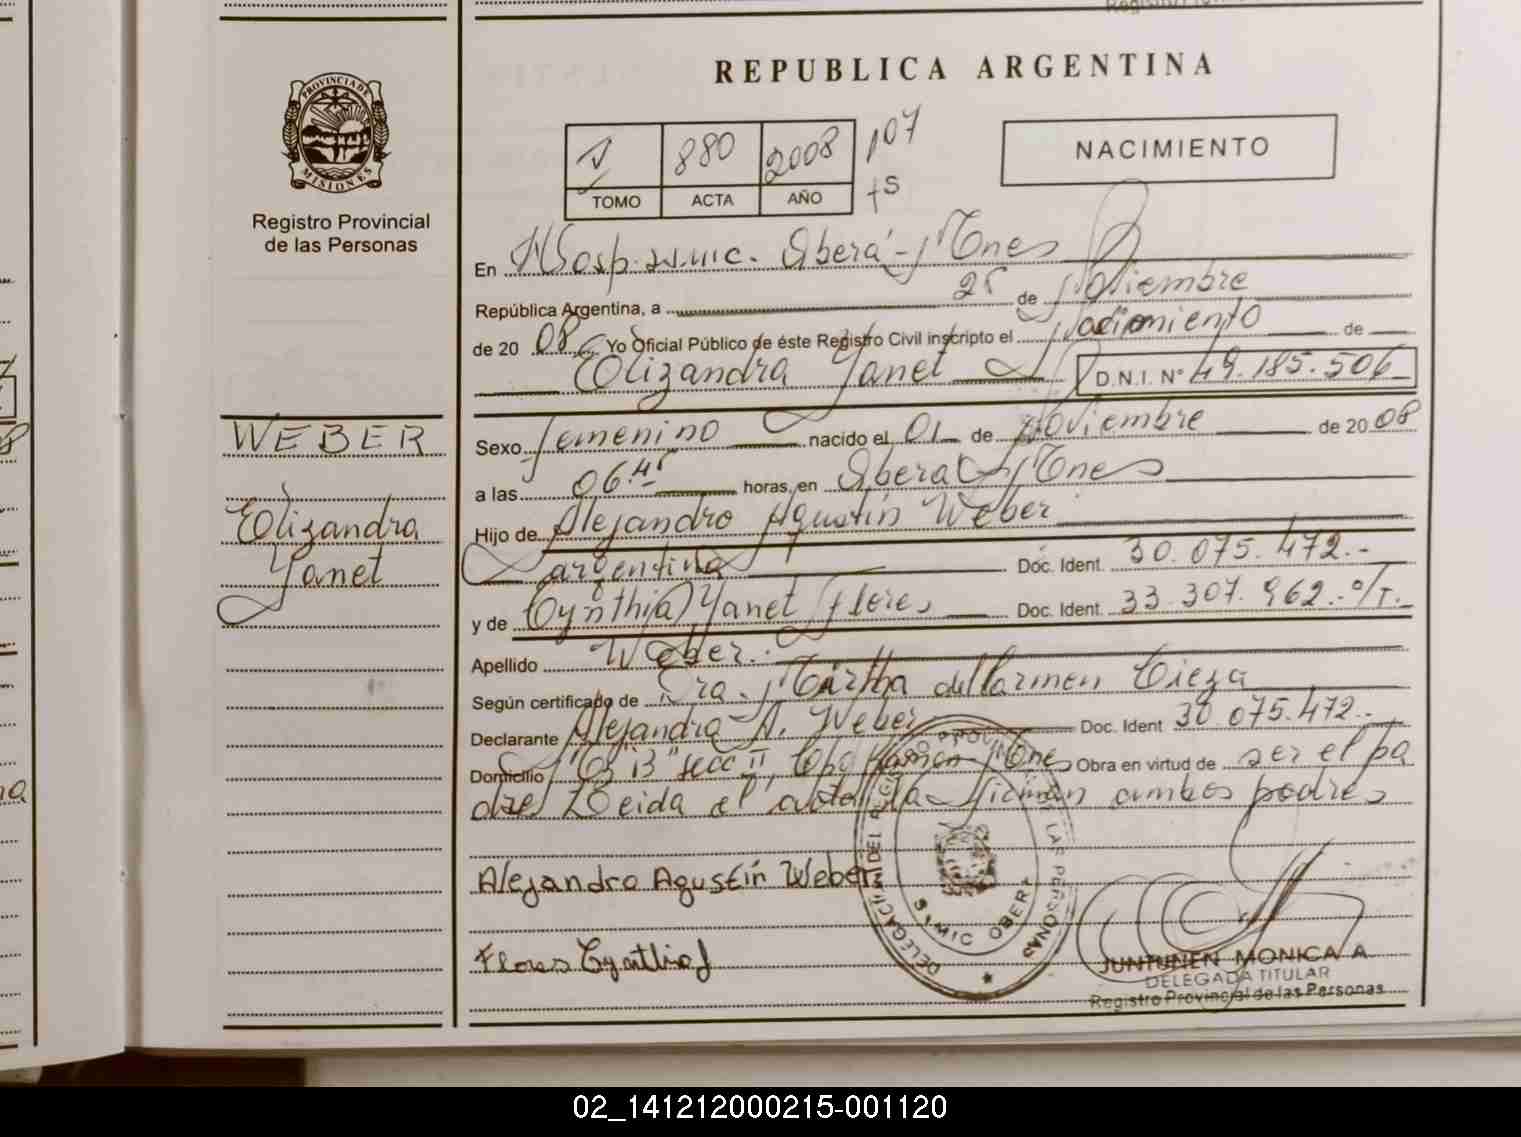 REPUBLICA ARGENTINA
PROVINCIA DE
MISIONES
Registro Provincial
de las Personas
880 2008 107
TOMO ACTA AÑO
NACIMIENTO
En Hosp. Oberá - Mnes
República Argentina, a 25 de Noviembre
de 20 08 Yo Oficial Público de éste Registro Civil inscripto el Nacimiento de
Elizandra Yanet D.N.I. Nº 49.185.506
WEBER
Elizandra
Yanet
Sexo femenino nacido el 01 de Noviembre de 20 08
a las 06.45 horas, en Oberá Mnes
Hijo de Alejandro Agustín Weber
argentina Doc. Ident. 30.075.472.-
y de Cynthia Yanet Flores Doc. Ident. 33.307.962.-
Apellido Weber.
Según certificado de Dra. Mirtha del Carmen Cieza
Declarante Alejandro A. Weber Doc. Ident 30.075.472.-
Domicilio secc II, Mnes Obra en virtud de ser el pa
dre Leida el acta la firman ambos padres
Alejandro Agustín Weber
Flores Cynthia
JUNTUNEN MONICA A
DELEGADA TITULAR
Registro Provincial de las Personas
02_141212000215-001120